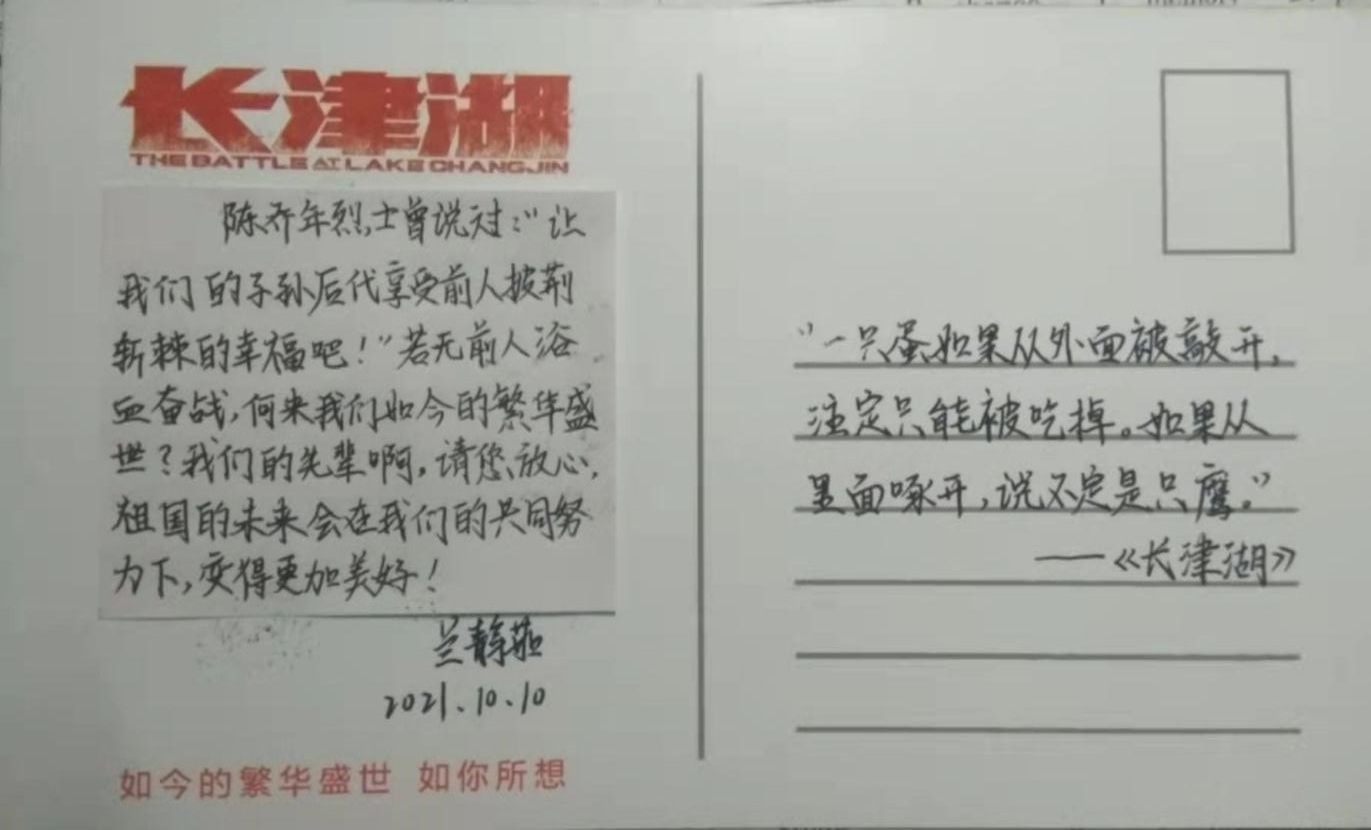 长津湖
THE BATTLE AT LAKE CHANGJIN
陈乔年烈士曾说过：“让
我们的子孙后代享受前人披荆
斩棘的幸福吧！”若无前人浴
血奋战，何来我们如今的繁华盛
世？我们的先辈啊，请您放心，
祖国的未来会在我们的共同努
力下，变得更加美好！
兰静茹
2021.10.10
如今的繁华盛世 如你所想
“一只蛋如果从外面被敲开，
注定只能被吃掉。如果从
里面啄开，说不定是只鹰。”
——《长津湖》